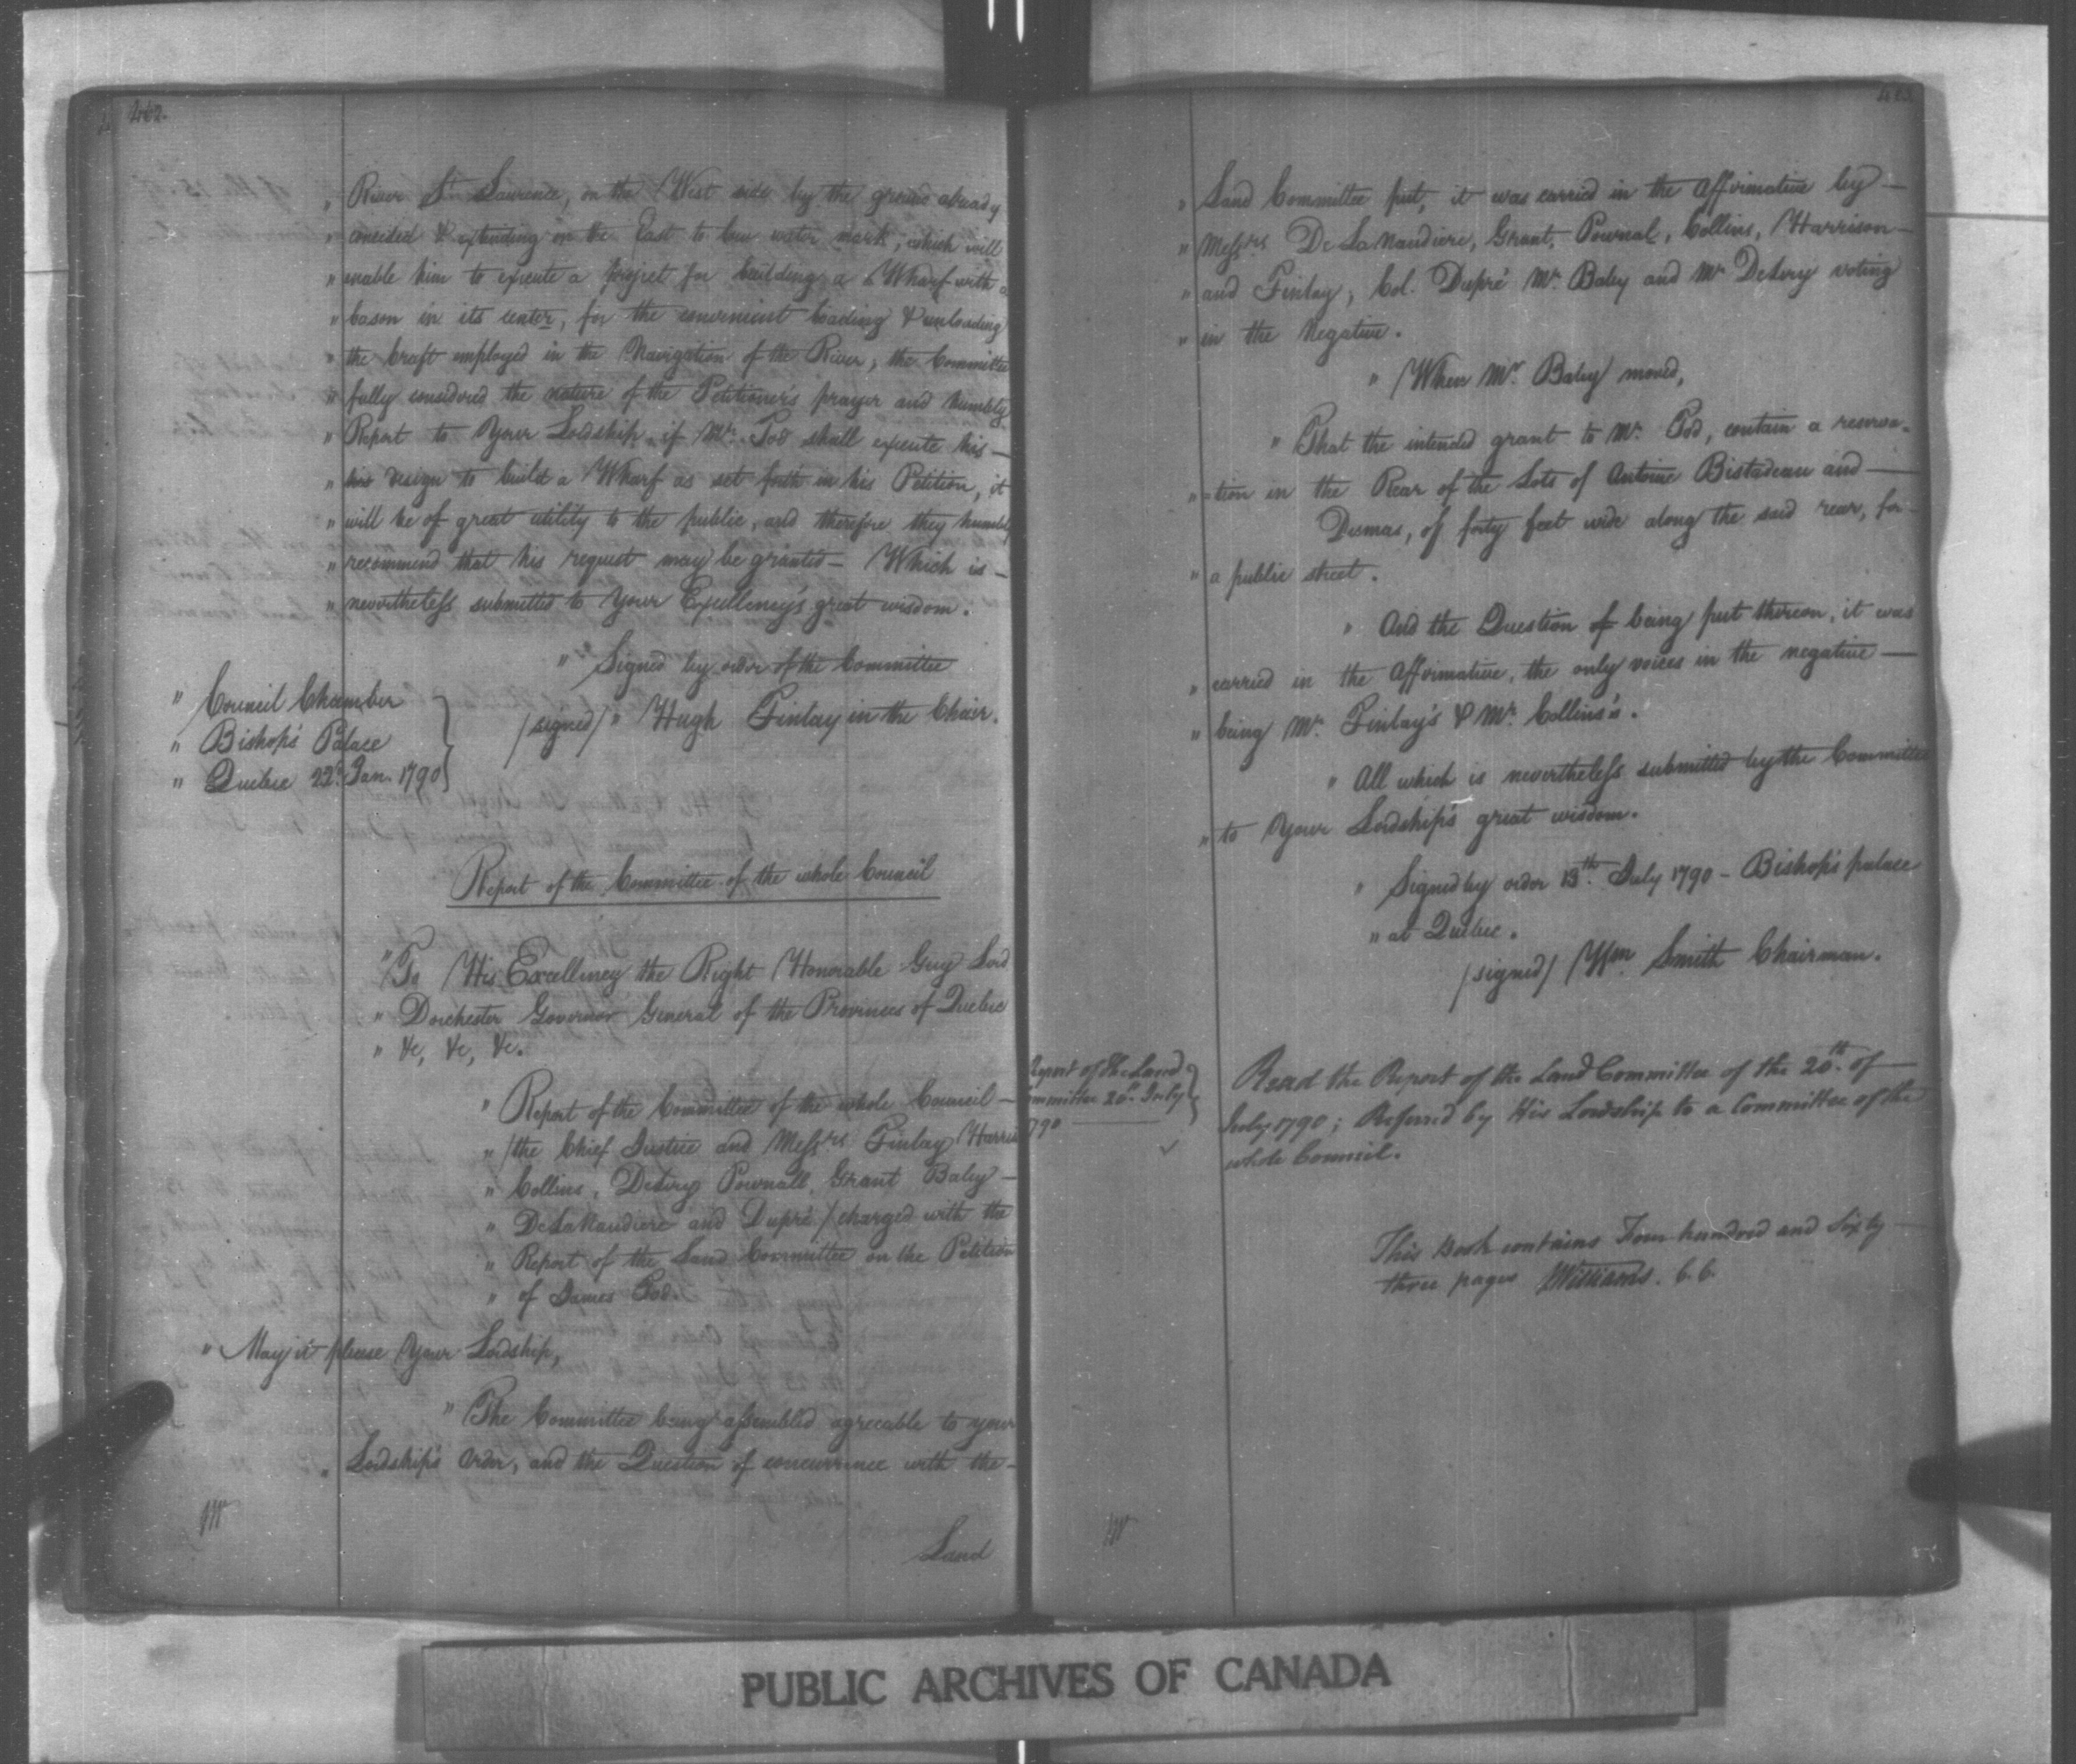 462.
" River St. Lawrence, on the West side by the ground already
" conceded & extending on the East to low water mark, which will
" enable him to execute a project for building a Wharf with a
" bason in its center, for the convenient loading & unloading
" the Craft employed in the Navigation of the River; the Committee
" fully considered the nature of the Petitioner's prayer and humbly
" Report to Your Lordship, if Mr. Tod shall execute his —
" his design to build a Wharf as set forth in his Petition, it
" will be of great utility to the public, and therefore they humbly
" recommend that his request may be granted — Which is —
" nevertheless submitted to Your Excellency's great wisdom.
" Signed by order of the Committee
/signed/ " Hugh Finlay in the Chair.
" Council Chamber
" Bishop's Palace
" Quebec 22d. Jan. 1790
Report of the Committee of the whole Council
" To His Excellency the Right Honorable Guy Lord
" Dorchester Governor General of the Provinces of Quebec
" &c, &c, &c.
" Report of the Committee of the whole Council —
" /the Chief Justice and Messrs. Finlay Harris
" Collins, DeLery Pownall, Grant Baby —
" DeLaNaudiere and Dupré/ charged with the
" Report of the Land Committee on the Petition
" of James Tod.
" May it please Your Lordship,
" The Committee being assembled agreeable to your
" Lordship's Order, and the Question of concurrence with the —
Land
463.
" Land Committee put, it was carried in the affirmative by —
" Messrs. DeLaNaudiere, Grant, Pownal, Collins, Harrison —
" and Finlay, Col. Dupré Mr. Baby and Mr. DeLery voting
" in the Negative.
" When Mr. Baby moved,
" That the intended grant to Mr. Tod, contain a reserva-
" -tion in the Rear of the Lots of Antoine Bistadeau and —
Dumas, of forty feet wide along the said rear, for —
" a public street.
" And the Question of being put thereon, it was
" carried in the affirmative, the only voices in the negative —
" being Mr. Finlay's & Mr. Collins's.
" All which is nevertheless submitted by the Committee
" to Your Lordship's great wisdom.
" Signed by order 13th. July 1790 — Bishop's palace
" at Quebec.
/signed/ Wm. Smith Chairman.
Report of the Land
Committee 20th July
1790
Read the Report of the Land Committee of the 20th. of —
July 1790; Referred by His Lordship to a Committee of the
whole Council.
This Book contains Four hundred and Sixty
three pages JWilliams. C.C.
PUBLIC ARCHIVES OF CANADA